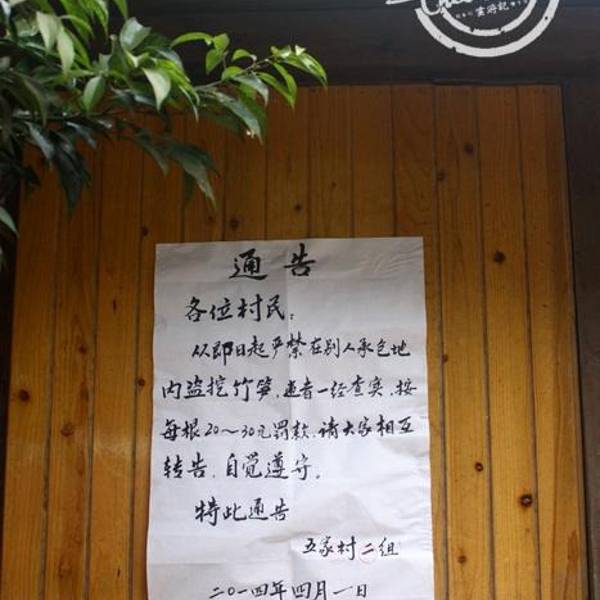 通告
各位村民：
从即日起严禁在别人承包地
内盗挖竹笋，违者一经查实，按
每根20～30元罚款，请大家相互
转告，自觉遵守。
特此通告
五家村二组
二〇一四年四月一日